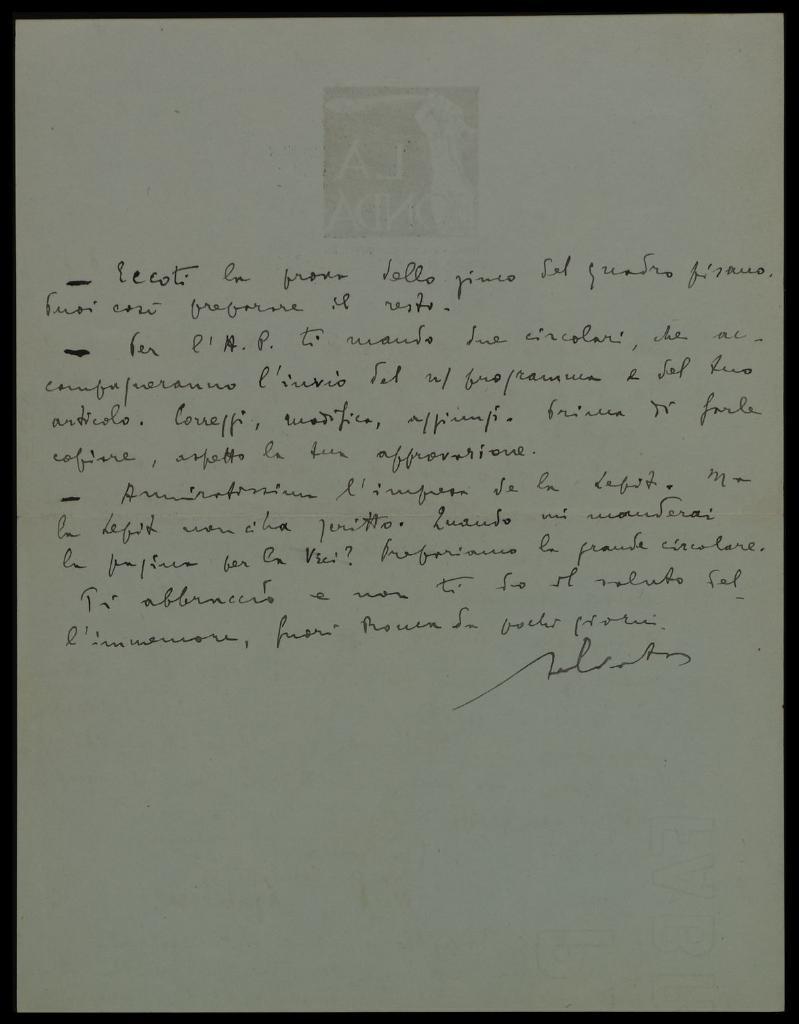 LA
FIONDA
— Eccoti la prova dello zinco del quadro pisano.
Puoi così preparare il resto.
— Per l'A. P. ti mando due circolari, che ac-
compagneranno l'invio del n/ programma e del tuo
articolo. Correggi, modifica, aggiungi. Prima di farle
copiare, aspetto la tua approvazione.
— Ammiratissima l'impresa de la Lepit. Ma
la Lepit non ci ha scritto. Quando mi manderai
la pagina per la Veci? Prepariamo la grande circolare.
Ti abbraccio e non ti do il saluto del-
l'immemore, fuori Roma da pochi giorni.